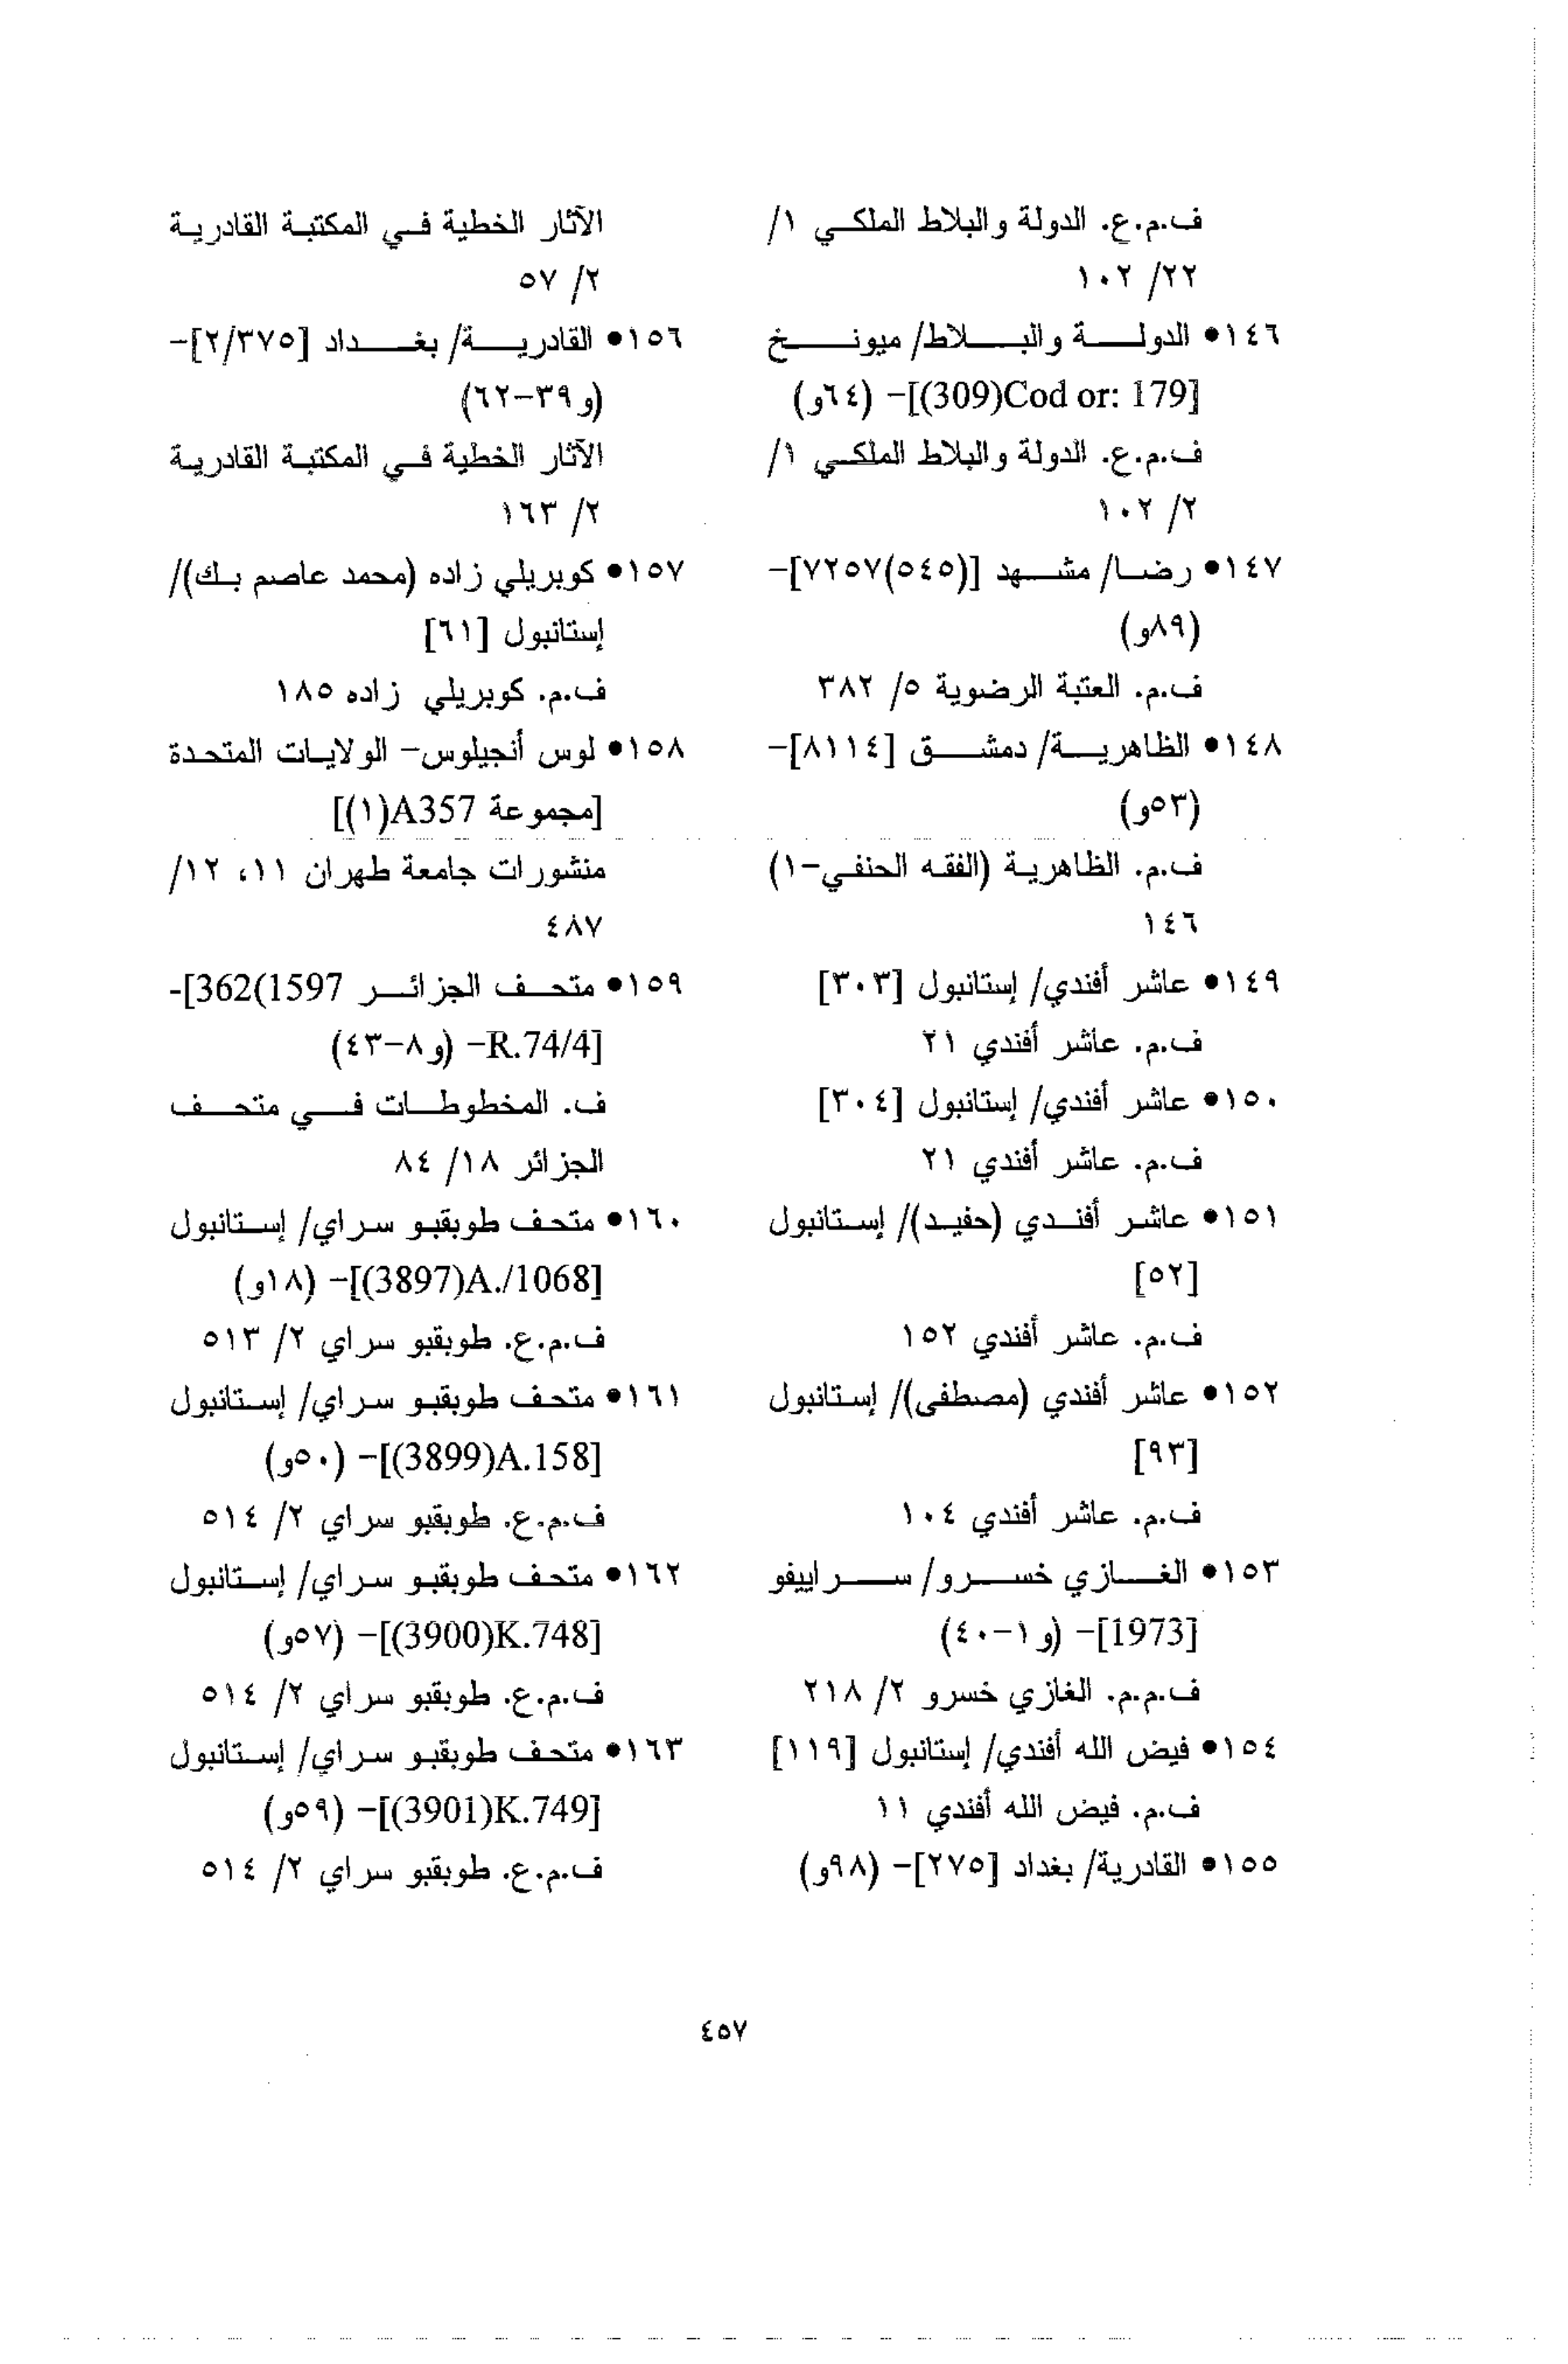 ف.م.ع. الدولة والبلاط الملكي ١/
٢٢/ ١٠٢
١٤٦• الدولة والبلاط/ ميونخ
[Cod or: 179(309)]- (٦٤و)
ف.م.ع. الدولة والبلاط الملكي ١/
٢/ ١٠٢
١٤٧• رضا/ مشهد [(٥٤٥)٧٢٥٧]-
(٨٩و)
ف.م. العتبة الرضوية ٥/ ٣٨٢
١٤٨• الظاهرية/ دمشق [٨١١٤]-
(٥٣و)
ف.م. الظاهرية (الفقه الحنفي-١)
١٤٦
١٤٩• عاشر أفندي/ إستانبول [٣٠٣]
ف.م. عاشر أفندي ٢١
١٥٠• عاشر أفندي/ إستانبول [٣٠٤]
ف.م. عاشر أفندي ٢١
١٥١• عاشر أفندي (حفيد)/ إستانبول
[٥٢]
ف.م. عاشر أفندي ١٥٢
١٥٢• عاشر أفندي (مصطفى)/ إستانبول
[٩٣]
ف.م. عاشر أفندي ١٠٤
١٥٣• الغازي خسرو/ سراييفو
[1973]- (و١-٤٠)
ف.م.م. الغازي خسرو ٢/ ٢١٨
١٥٤• فيض الله أفندي/ إستانبول [١١٩]
ف.م. فيض الله أفندي ١١
١٥٥• القادرية/ بغداد [٢٧٥]- (٩٨و)
الآثار الخطية في المكتبة القادرية
٢/ ٥٧
١٥٦• القادرية/ بغداد [٢/٣٧٥]-
(و٣٩-٦٢)
الآثار الخطية في المكتبة القادرية
٢/ ١٦٣
١٥٧• كوبريلي زاده (محمد عاصم بك)/
إستانبول [٦١]
ف.م. كوبريلي زاده ١٨٥
١٥٨• لوس أنجيلوس- الولايات المتحدة
[مجموعة A357(١)]
منشورات جامعة طهران ١١، ١٢/
٤٨٧
١٥٩• متحف الجزائر 1597)362]-
[R.74/4- (و٨-٤٣)
ف. المخطوطات في متحف
الجزائر ١٨/ ٨٤
١٦٠• متحف طوبقبو سراي/ إستانبول
[A./1068(3897)]- (١٨و)
ف.م.ع. طوبقبو سراي ٢/ ٥١٣
١٦١• متحف طوبقبو سراي/ إستانبول
[A.158(3899)]- (٥٠و)
ف.م.ع. طوبقبو سراي ٢/ ٥١٤
١٦٢• متحف طوبقبو سراي/ إستانبول
[K.748(3900)]- (٥٧و)
ف.م.ع. طوبقبو سراي ٢/ ٥١٤
١٦٣• متحف طوبقبو سراي/ إستانبول
[K.749(3901)]- (٥٩و)
ف.م.ع. طوبقبو سراي ٢/ ٥١٤
٤٥٧